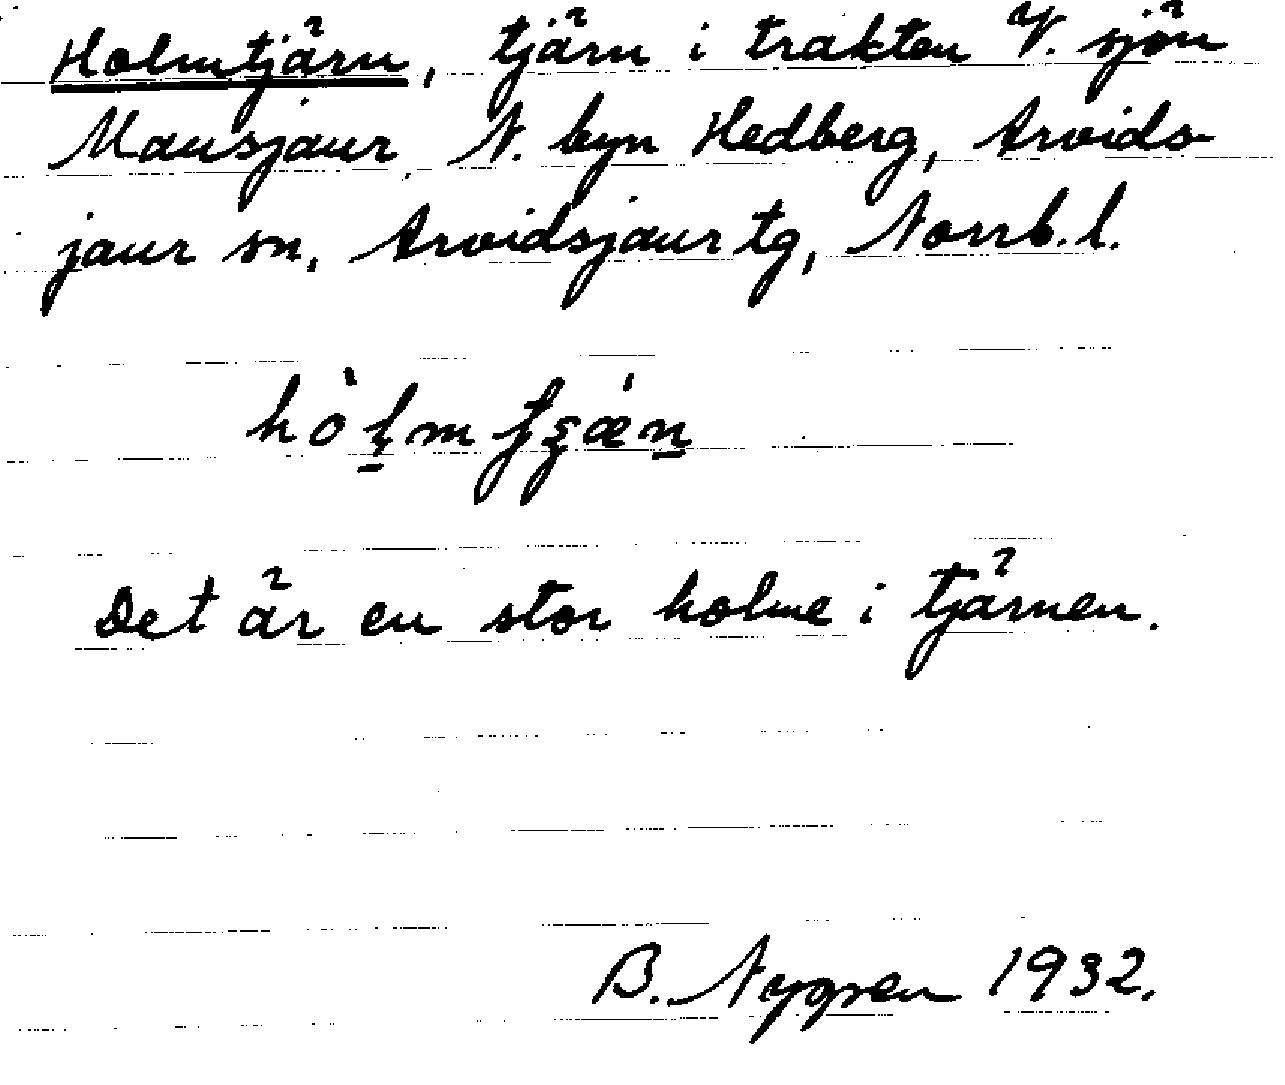 Holmtjärn, tjärn i trakten V. sjön
Mausjaur, N. byn Hedberg, Arvids-
jaur sn, Arvidsjaur tg, Norrb. l.
Det är en stor holme i tjärnen.
B. Nygren 1932.